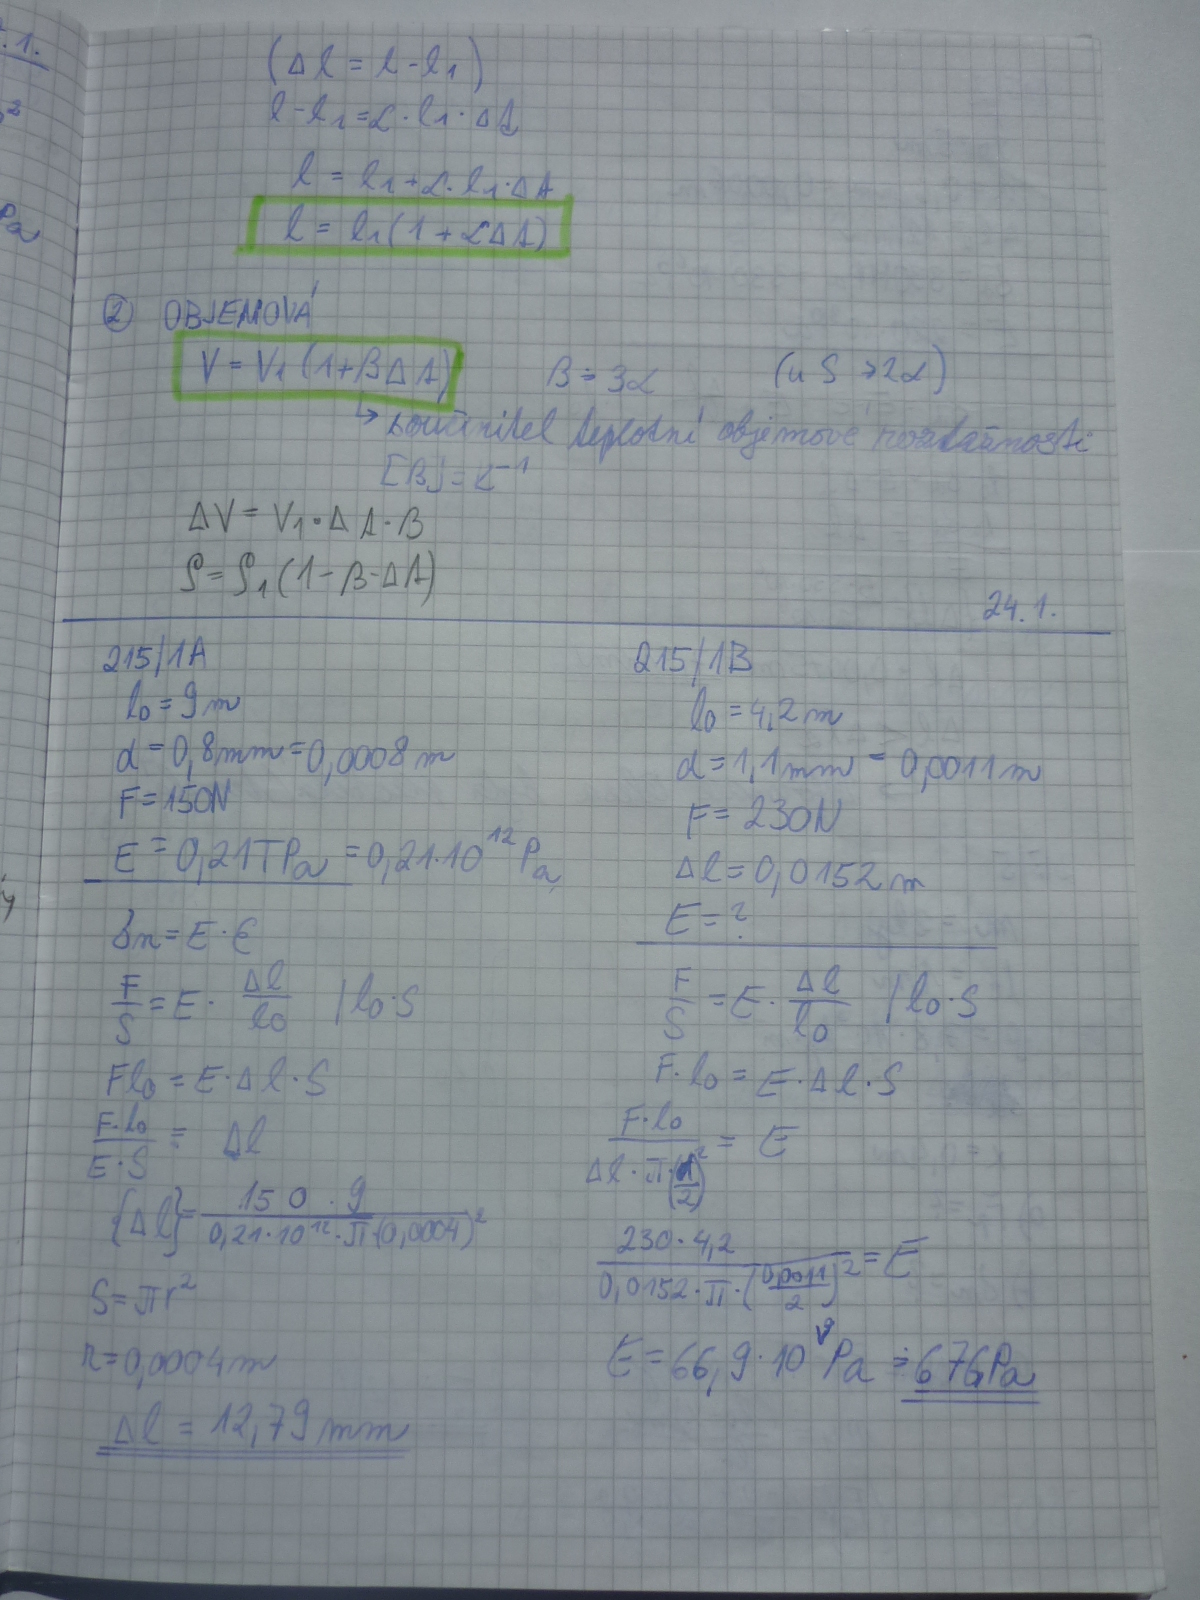 .1.
2
Pa
(Δl = l - l₁)
l - l₁ = α · l₁ · Δt
l = l₁ + α · l₁ · Δt
l = l₁ (1 + αΔt)
② OBJEMOVÁ
V = V₁ (1 + βΔt) β = 3α (u S → 2α)
↳ součinitel teplotní objemové roztažnosti
[β] = K⁻¹
ΔV = V₁ · Δt · β
ρ = ρ₁ (1 - β · Δt)
24.1.
215/1A
l₀ = 9 m
d = 0,8 mm = 0,0008 m
F = 150N
E = 0,21TPa = 0,21·10¹² Pa
δn = E · ε
F/S = E · Δl/l₀ /l₀·S
Fl₀ = E·Δl·S
F·l₀/E·S = Δl
{Δl} = 150 · 9/0,21·10¹²·π·(0,0004)²
S = πr²
r = 0,0004 m
Δl = 12,79 mm
215/1B
l₀ = 4,2 m
d = 1,1 mm = 0,0011 m
F = 230N
Δl = 0,0152 m
E = ?
F/S = E · Δl/l₀ /l₀·S
F·l₀ = E·Δl·S
F·l₀/Δl·π·(d/2)² = E
230·4,2/0,0152·π·(0,0011/2)² = E
E = 66,9·10⁹ Pa ≐ 67GPa